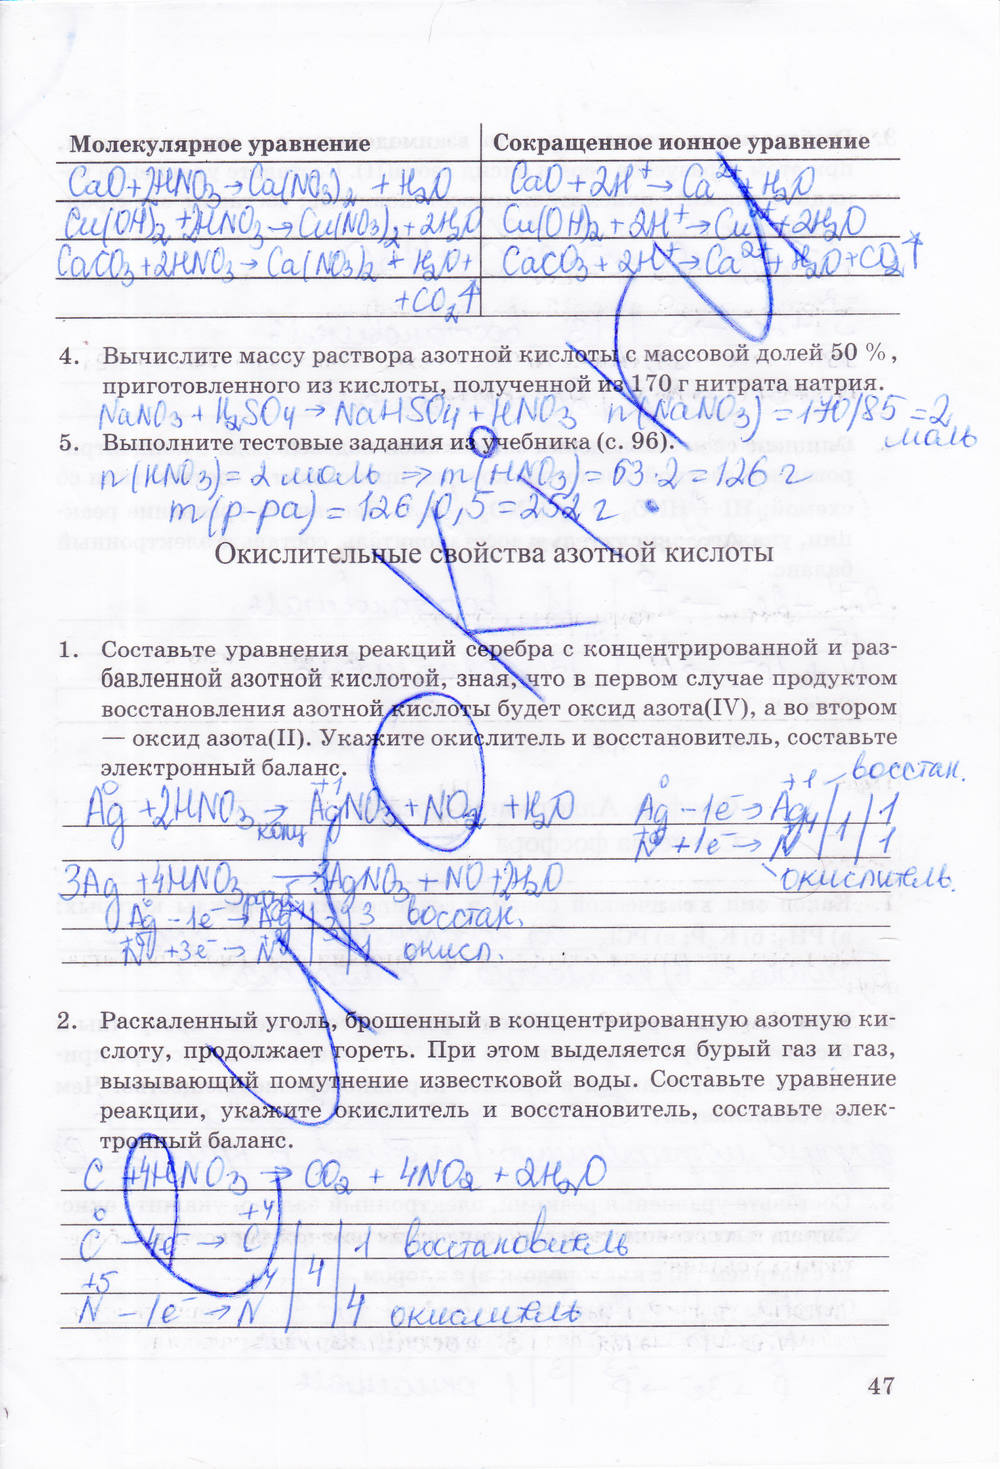 Молекулярное уравнение Сокращенное ионное уравнение
CaO+2HNO₃→Ca(NO₃)₂ + H₂O CaO+2H⁺→Ca²⁺+H₂O
Cu(OH)₂+2HNO₃→Cu(NO₃)₂+2H₂O Cu(OH)₂+2H⁺→Cu²⁺+2H₂O
CaCO₃+2HNO₃→Ca(NO₃)₂+H₂O+ CaCO₃+2H⁺→Ca²⁺+H₂O+CO₂↑
+CO₂↑
4. Вычислите массу раствора азотной кислоты с массовой долей 50 %,
приготовленного из кислоты, полученной из 170 г нитрата натрия.
NaNO₃+H₂SO₄→NaHSO₄+HNO₃ n(NaNO₃)=170/85=2
моль
5. Выполните тестовые задания из учебника (с. 96).
n(HNO₃)=2 моль ⇒ m(HNO₃)=63·2=126 г
m(р-ра)=126/0,5=252 г.
Окислительные свойства азотной кислоты
1. Составьте уравнения реакций серебра с концентрированной и раз-
бавленной азотной кислотой, зная, что в первом случае продуктом
восстановления азотной кислоты будет оксид азота(IV), а во втором
— оксид азота(II). Укажите окислитель и восстановитель, составьте
электронный баланс.
восстан.
Ag⁰+2HNO₃ конц→Ag⁺¹NO₃+NO₂+H₂O Ag⁰-1e⁻→Ag⁺¹ | | 1
N⁺⁵+1e⁻→N⁺⁴ | 1 | 1
окислитель.
3Ag+4HNO₃ разб→3AgNO₃+NO+2H₂O
Ag⁰-1e⁻→Ag⁺¹ | 3 восстан.
N⁺⁵+3e⁻→N⁺² | 1 окисл.
2. Раскаленный уголь, брошенный в концентрированную азотную ки-
слоту, продолжает гореть. При этом выделяется бурый газ и газ,
вызывающий помутнение известковой воды. Составьте уравнение
реакции, укажите окислитель и восстановитель, составьте элек-
тронный баланс.
C+4HNO₃→CO₂+4NO₂+2H₂O
C⁰-4e→C⁺⁴ | | 1 восстановитель
4
N⁺⁵-1e⁻→N⁺⁴ | | 4 окислитель
47